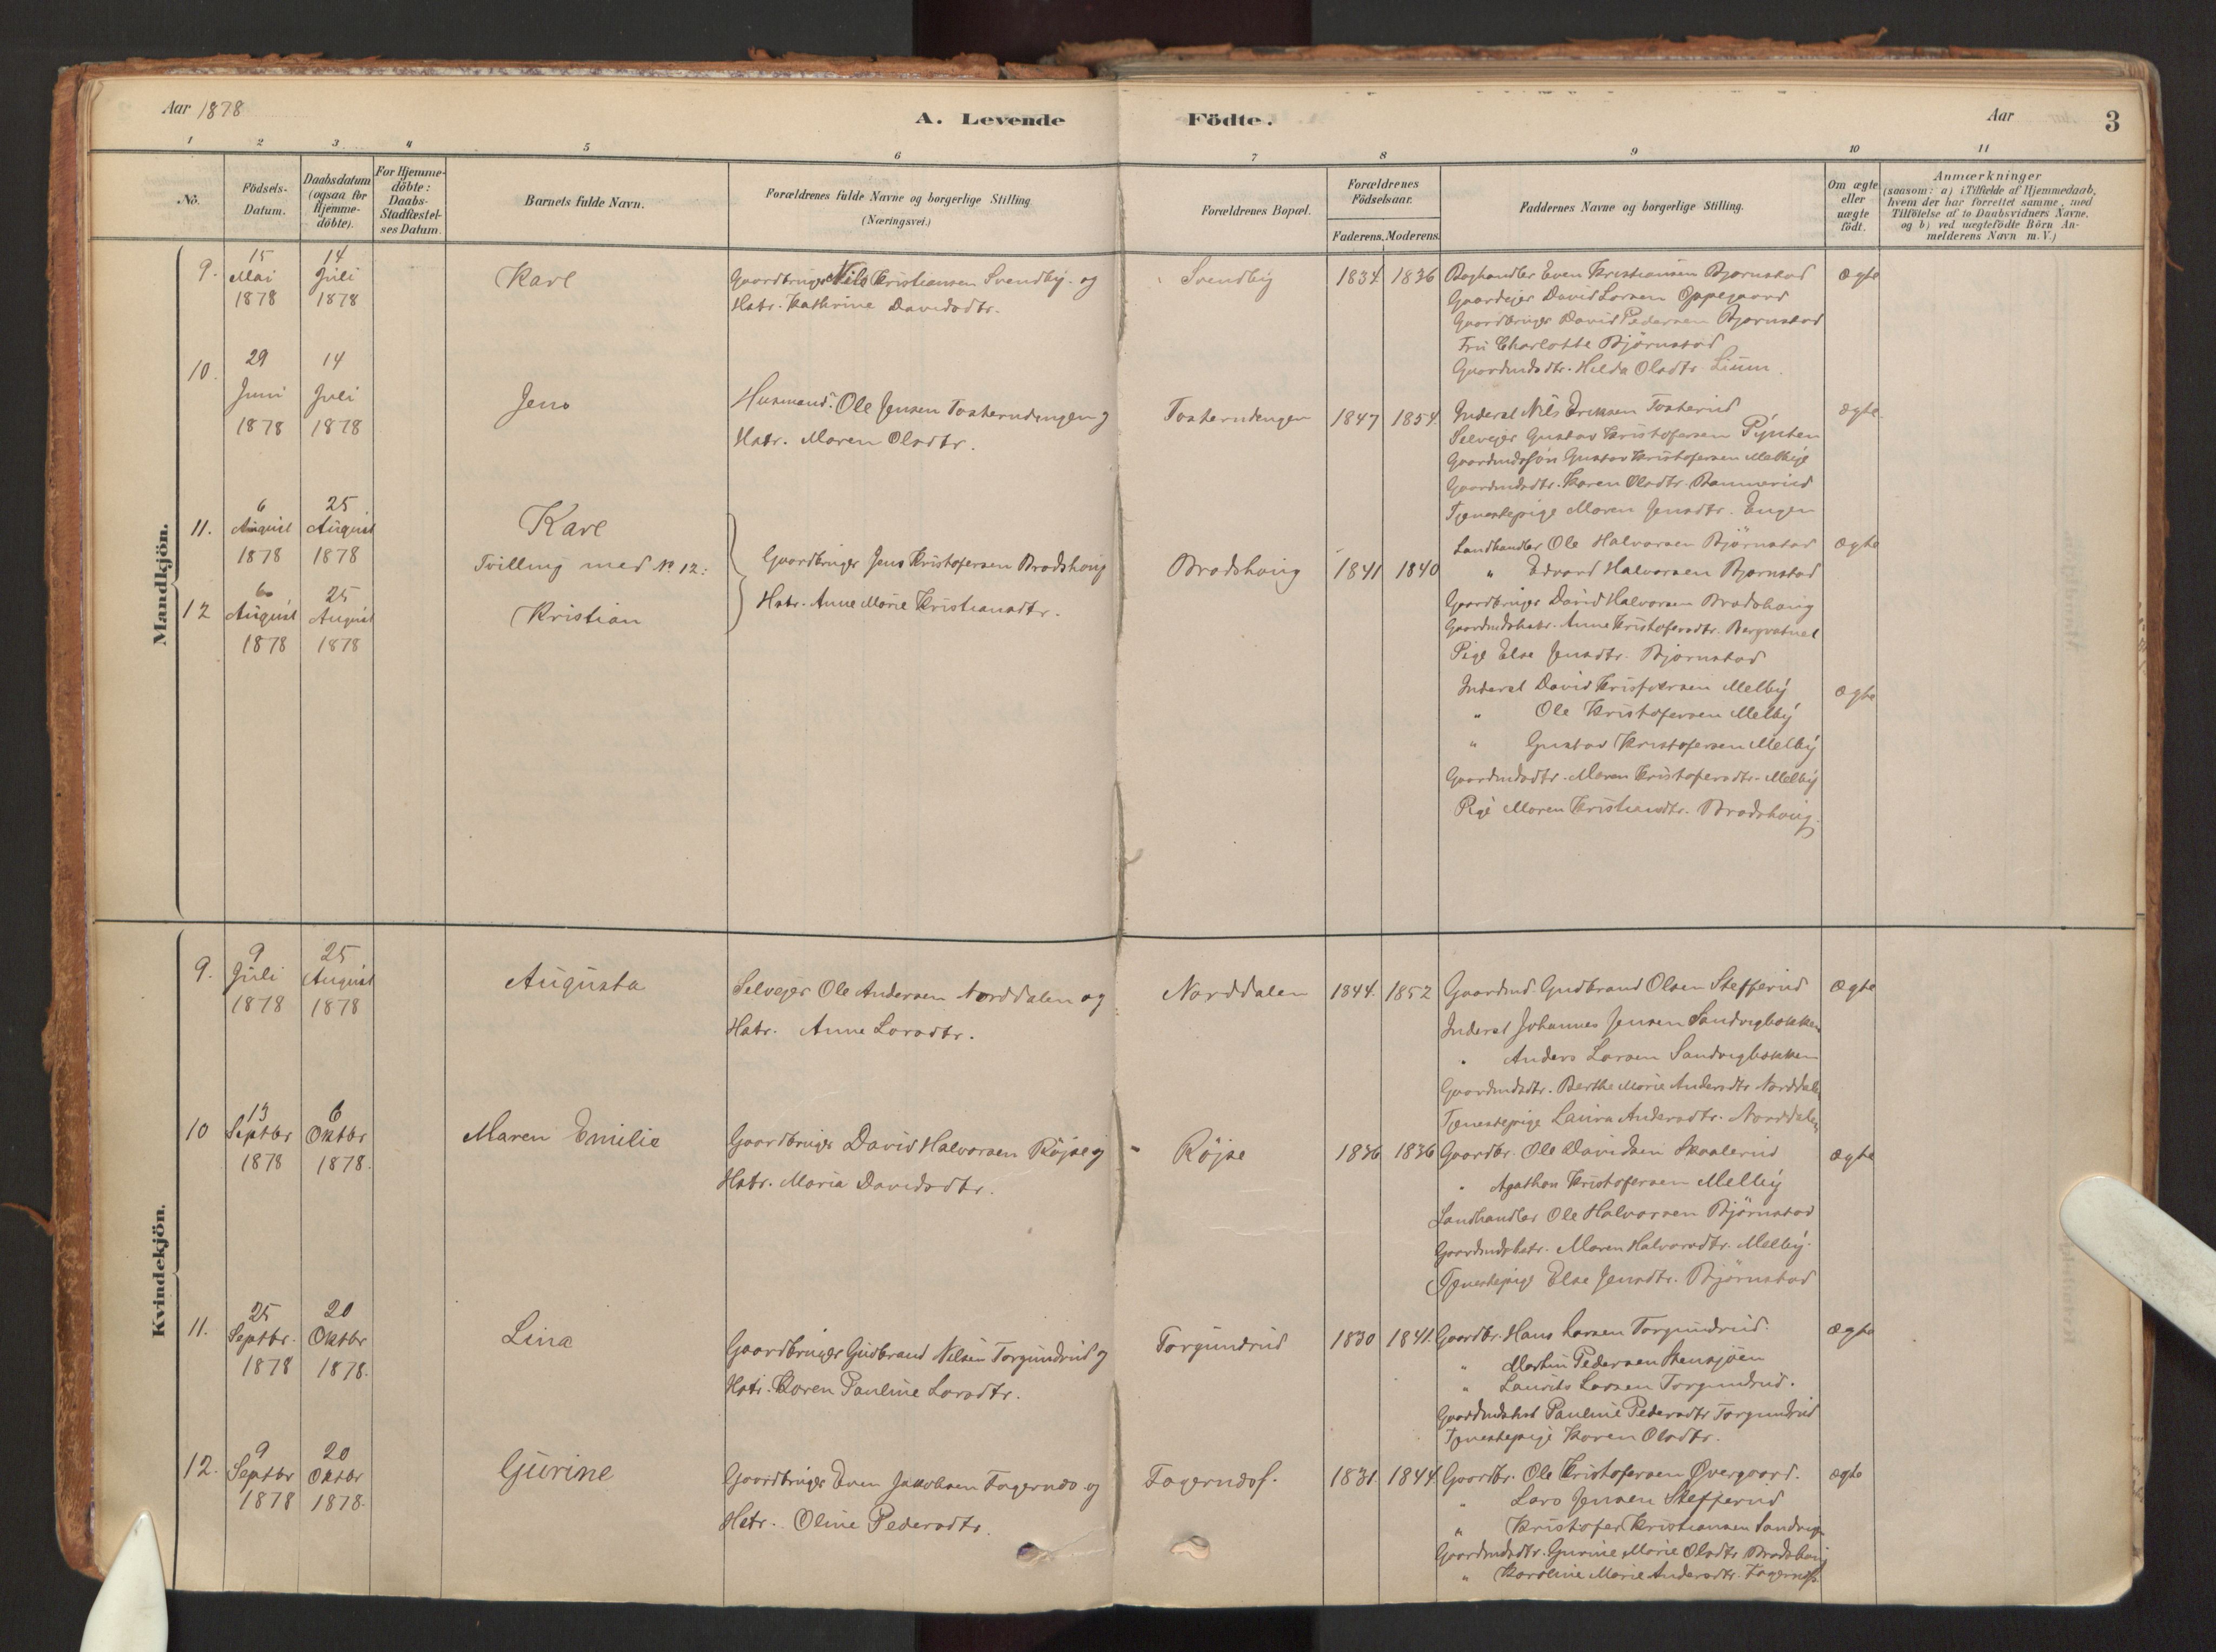 Aar 1878
A. Levende Födte.
Aar
3
1 2 3 4 5 6 7 8 9 10 11
No.
Födsels-Datum.
Daabsdatum (ogsaa for Hjemme-döbte).
For Hjemme-döbte: Daabs-Stadfæstel-ses Datum.
Barnets fulde Navn.
Forældrenes fulde Navne og borgerlige Stilling.
(Næringsvei.)
Forældrenes Bopæl.
Forældrenes Födselsaar.
Faderens. Moderens.
Faddernes Navne og borgerlige Stilling.
Om ægte eller uægte födt.
Anmærkninger
(saasom: a) i Tilfælde af Hjemmedaab,
hvem der har forrettet samme, med
Tilföielse af to Daabsvidners Navne,
og b) ved uægtefödte Börn An-
melderens Navn m. V.)
Mandkjön.
9. 15 Mai 1878 14 Juli 1878
Karl
Gaardbruger Nils Kristiansen Svendby og
Hstr. Kathrine Davidsdtr.
Svendby 1834 1836
Boghandler Even Kristiansen Bjørnstad
Gaardejer David Larsen Oppegaard
Gaardbruger David Pedersen Bjørnstad
Fru Charlotte Bjørnstad
Gaardmdsdtr. Hilda Olsdtr.
ægte
10. 29 Juni 1878 14 Juli 1878
Jens
Husmand Ole Jensen Tosterudengen og
Hstr. Maren Olsdtr.
Tosterudengen 1847 1854
Inderst Nils Eriksen Tosterud
Selvejer Gustav Kristofersen Pynten
Gaardmdssøn Gustav Kristofersen Melby
Gaardmdsdtr. Karen Olsdtr. Rammerud
Tjenestepige Maren Jensdtr. Engen
ægte
11. 6 August 1878 25 August 1878
Karl
Tvilling med No 12:
Gaardbruger Jens Kristofersen Bradshaug
Hstr. Anne Marie Kristiansdtr.
Bradshaug 1841 1840
Landhandler Ole Halvorsen Bjørnstad
" Edvard Halvorsen Bjørnstad
Gaardbruger David Halvorsen Bradshaug
Gaardmdshstr. Anne Kristofersdtr.
Pige Else Jensdtr. Bjørnstad
ægte
12 6 August 1878 25 August 1878
Kristian
Inderst David Kristofersen Melby
" Ole Kristofersen Melby
" Gustav Kristofersen Melby
Gaardmdsdtr. Maren Kristofersdtr. Melby
Pige Maren Kristiansdtr. Bradshaug.
ægte
Kvindekjön.
9. 9 Juli 1878 25 August 1878
Augusta
Selvejer Ole Andersen Norddalen og
Hstr. Anne Larsdtr.
Norddalen 1844. 1852
Gaardmd. Gudbrand Olsen Stefferud
Inderst Johannes Jensen Sandvigbakken
" Anders Larsen Sandvigbakken
Gaardmdsdtr. Berthe Marie Andersdtr Norddalen
Tjenestepige Laura Andersdtr. Norddalen
Ægte
10 13 Septbr 1878 6 Oktbr 1878.
Maren Emilie
Gaardbruger David Halvorsen Röjse og
Hstr. Maria Davidsdtr.
Röjse 1836 1836
Gaardbr. Ole Davidsen Skaalerud
" Agathon Kristofersen Melby
Landhandler Ole Halvorsen Bjørnstad
Gaardmdshstr. Maren Halvorsdtr. Melby.
Tjenestepige Else Jensdtr. Bjørnstad
ægte
11. 25 Septbr. 1878 20 Oktbr 1878.
Lina
Gaardbruger Gudbrand Nilsen Torgundrud og
Hstr. Karen Pauline Larsdtr.
Torgundrud 1830 1841.
Gaardbr. Hans Larsen Torgundrud.
" Martin Pedersen Stensjöen
" Laurits Larsen Torgundrud.
Gaardmdshst Pauline Pedersdtr Torgundrud
Tjenestepige Karen Olsdtr.
ægte
12. 9 Septbr 1878 20 Oktbr 1878.
Gurine
Gaardbruger Even Jakobsen Fagernæs og
Hstr. Oline Pedersdtr.
Fagernæs. 1831. 1844.
Gaardbr. Ole Kristofersen Øvergaard.
" Lars Jensen Stefferud
" Kristofer Kristiansen Sandvig
Gaardmdsdtr. Gurine Marie Olsdtr Bradshaug
" Karoline Marie Andersdtr. Fagernæs.
ægte